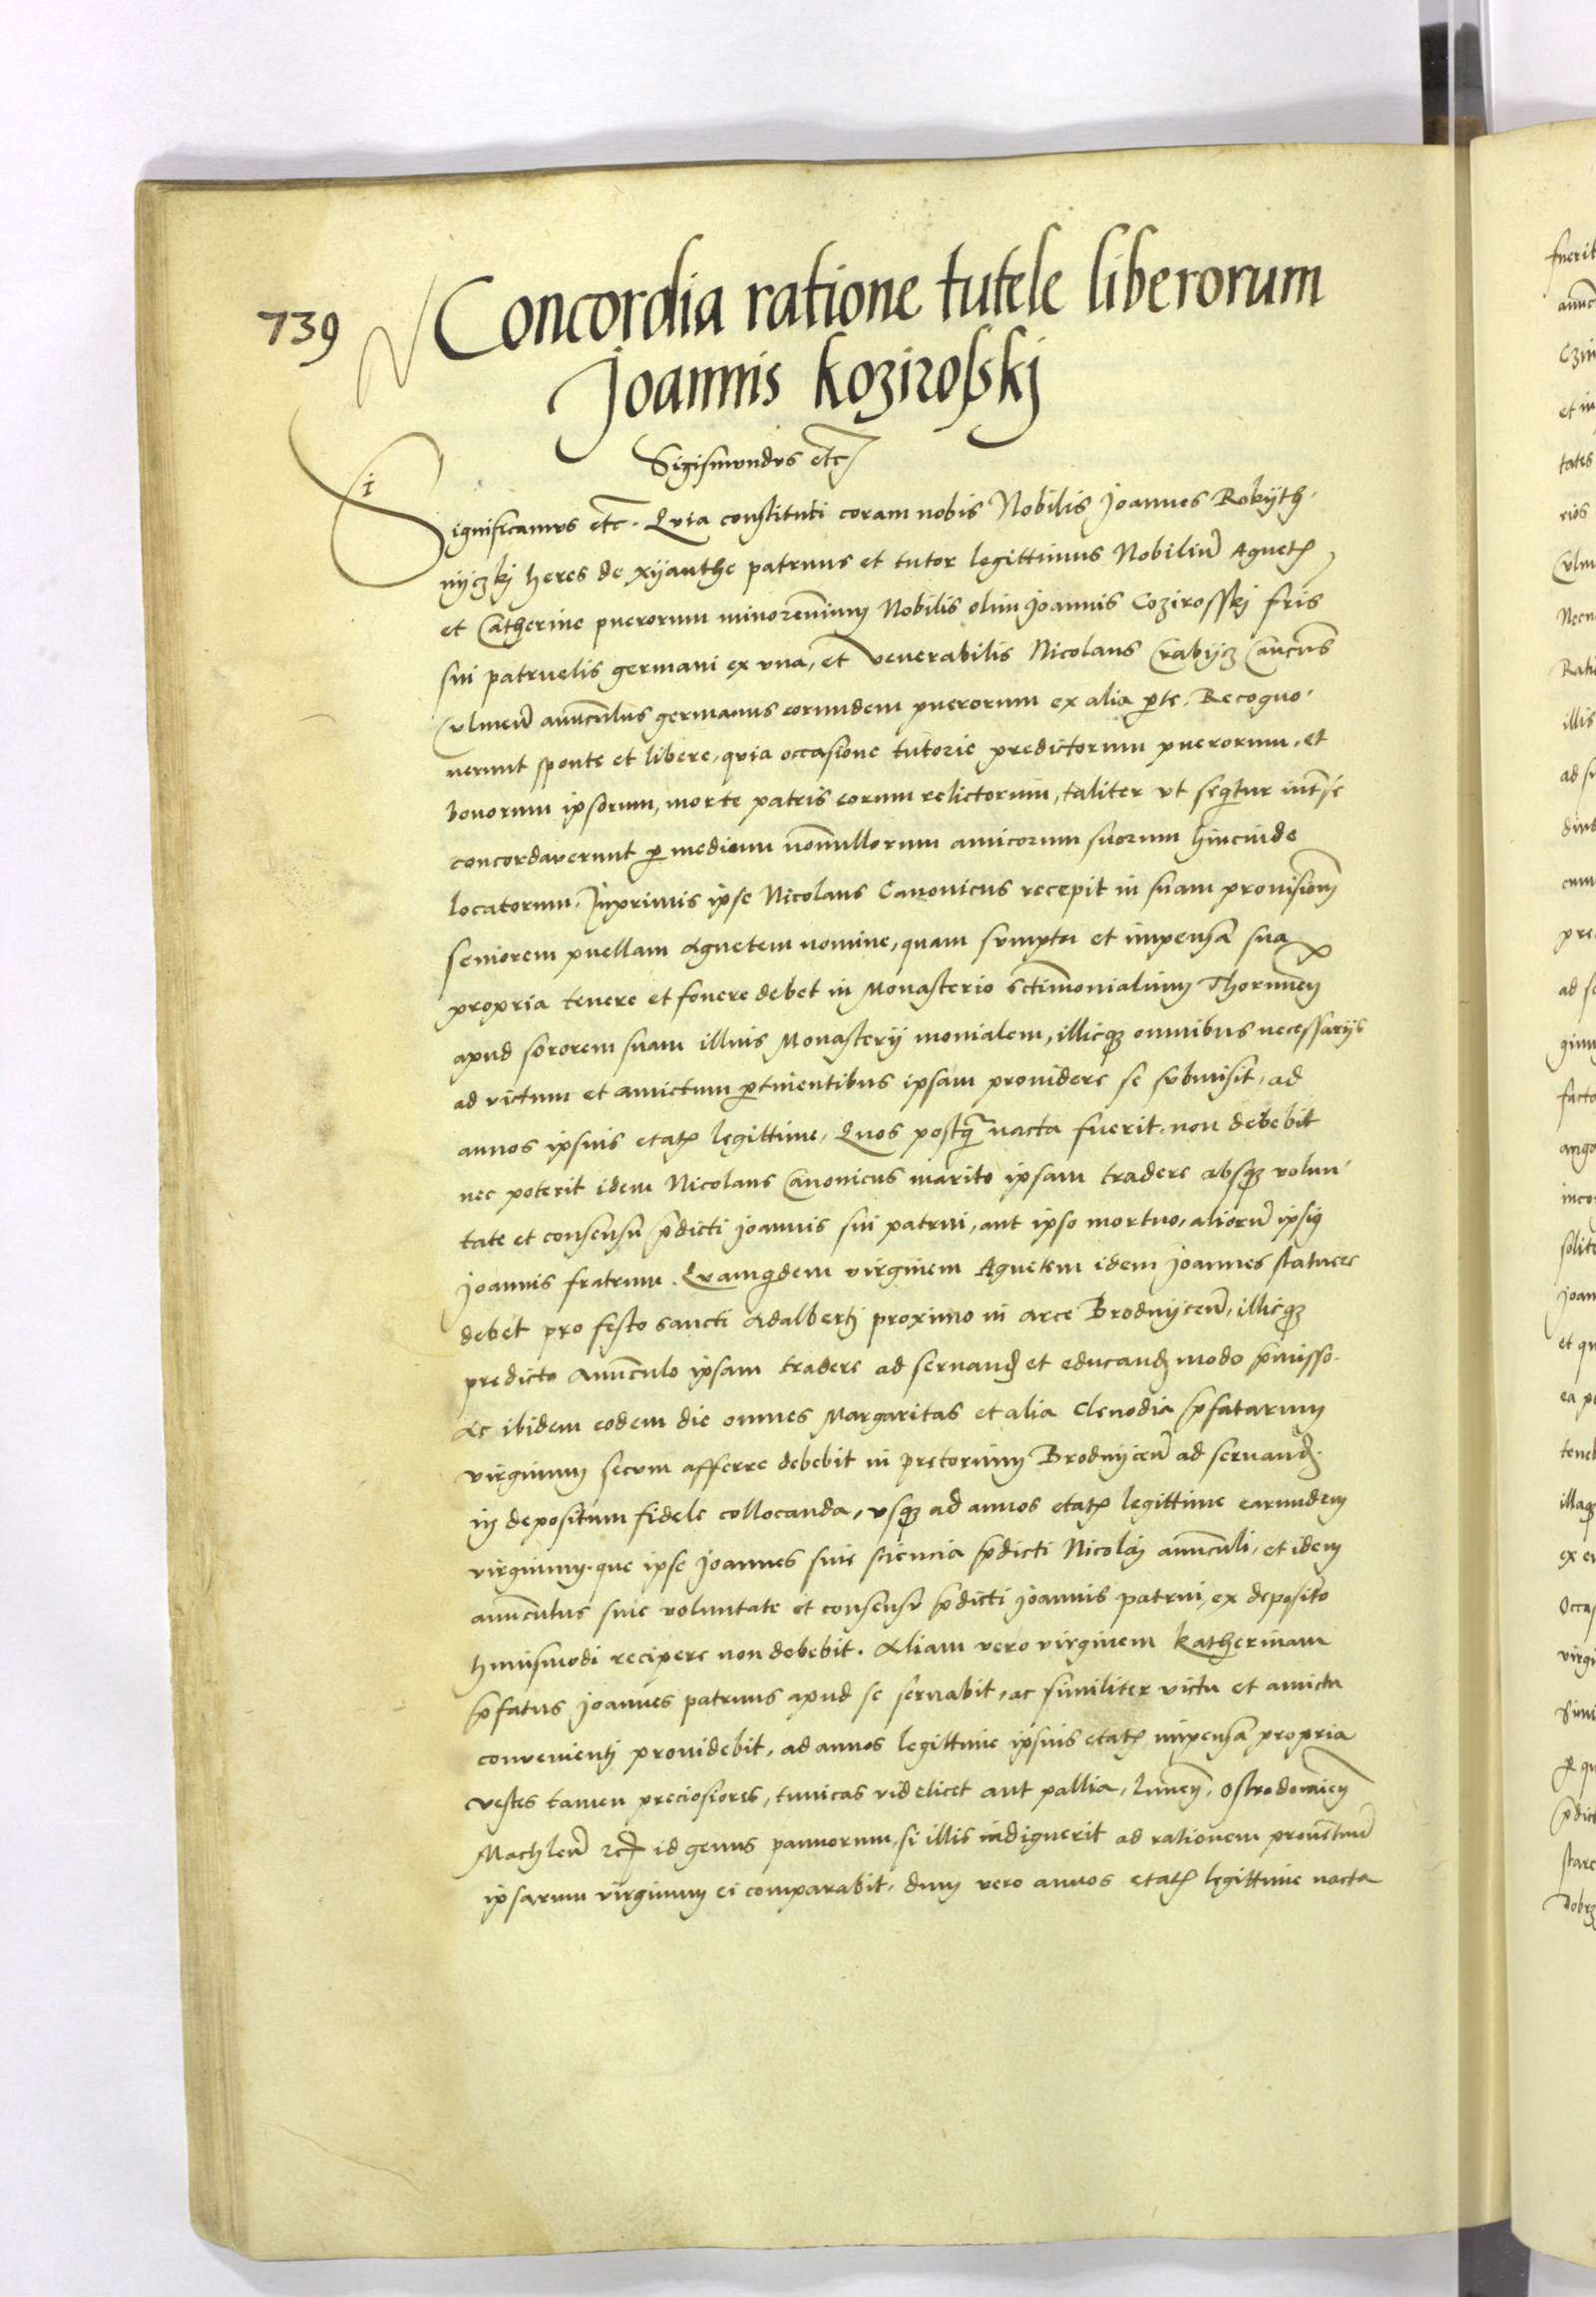 739
Concordia ratione tutele liberorum
Joannis Kozirosskj
Sigismundus etc
Significamus etc. Quia constituti coram nobis Nobilis Joannes Robÿth¬
nÿczkj heres de Xÿanthe patruus et tutor legittimus Nobiliũ Agnetꝭ
et Catherine puerorum minorennium Nobilis olim Joannis Cozirosskj fris
sui patruelis germani ex vna, et venerabilis Nicolaus Crabÿcz Cancus
Culmeñ auunculus germanus eorundem puerorum ex alia ꝑte. Recogno¬
uerunt sponte et libere, quia occasione tutorie predictorum puerorum, et
bonorum ipsorum, morte patris eorum relictorum, taliter vt seqtur int̃ se
concordauerunt ꝑ medium nonnullorum amicorum suorum hincinde
locatorum. Inprimis ipse Nicolaus Canonicus recepit in suam prouisionẽ
seniorem puellam Agnetem nomine, quam sumptu et impensa sua
propria tenere et fouere debet in Monasterio Sctimonialium Thorunen
apud sororem suam illius Monasterij monialem, illicqꝫ omnibus necessarijs
ad victum et amictum ꝑtinentibus ipsam prouidere se submisit, ad
annos ipsius etatꝭ legittime. Quos postq̃ nacta fuerit, non debebit
nec poterit idem Nicolaus Canonicus marito ipsam tradere absqꝫ volun¬
tate et consensu p̃dicti Joannis sui patrui, aut ipso mortuo, aliorũ ipsiꝰ
Joannis fratrum. Quamqidem virginem Agnetem idem Joannes statuere
debet pro festo sancti Adalbertj proximo in arce Brodnÿceñ, illicqꝫ
predicto Auunculo ipsam tradere ad seruand et educand modo p̃misso.
Ac ibidem eodem die omnes Margaritas et alia Clenodia p̃fatarum
virginum secum afferre debebit in pretorium Brodnÿceñ ad seruand
in depositum fidele collocanda, vsqꝫ ad annos etatꝭ legittime earundem
virginum. que ipse Joannes sine sciencia p̃dicti Nicolai auunculi, et idem
auunculus sine voluntate et consensu p̃dicti Joannis patrui, ex deposito
huiusmodi recipere non debebit. Aliam vero virginem Katherinam
p̃fatus Joannes patruus apud se seruabit, ac similiter victu et amictu
conuenientj prouidebit, ad annos legittime ipsius etatꝭ impensa propria
vestes tamen preciosiores, tunicas videlicet aut pallia, Lunen, Ostrodomien
Machleñ id genus pannorum, si illis indiguerit ad rationem prouentuũ
ipsarum virginum ei comparabit, dum vero annos etatꝭ legittime nacta